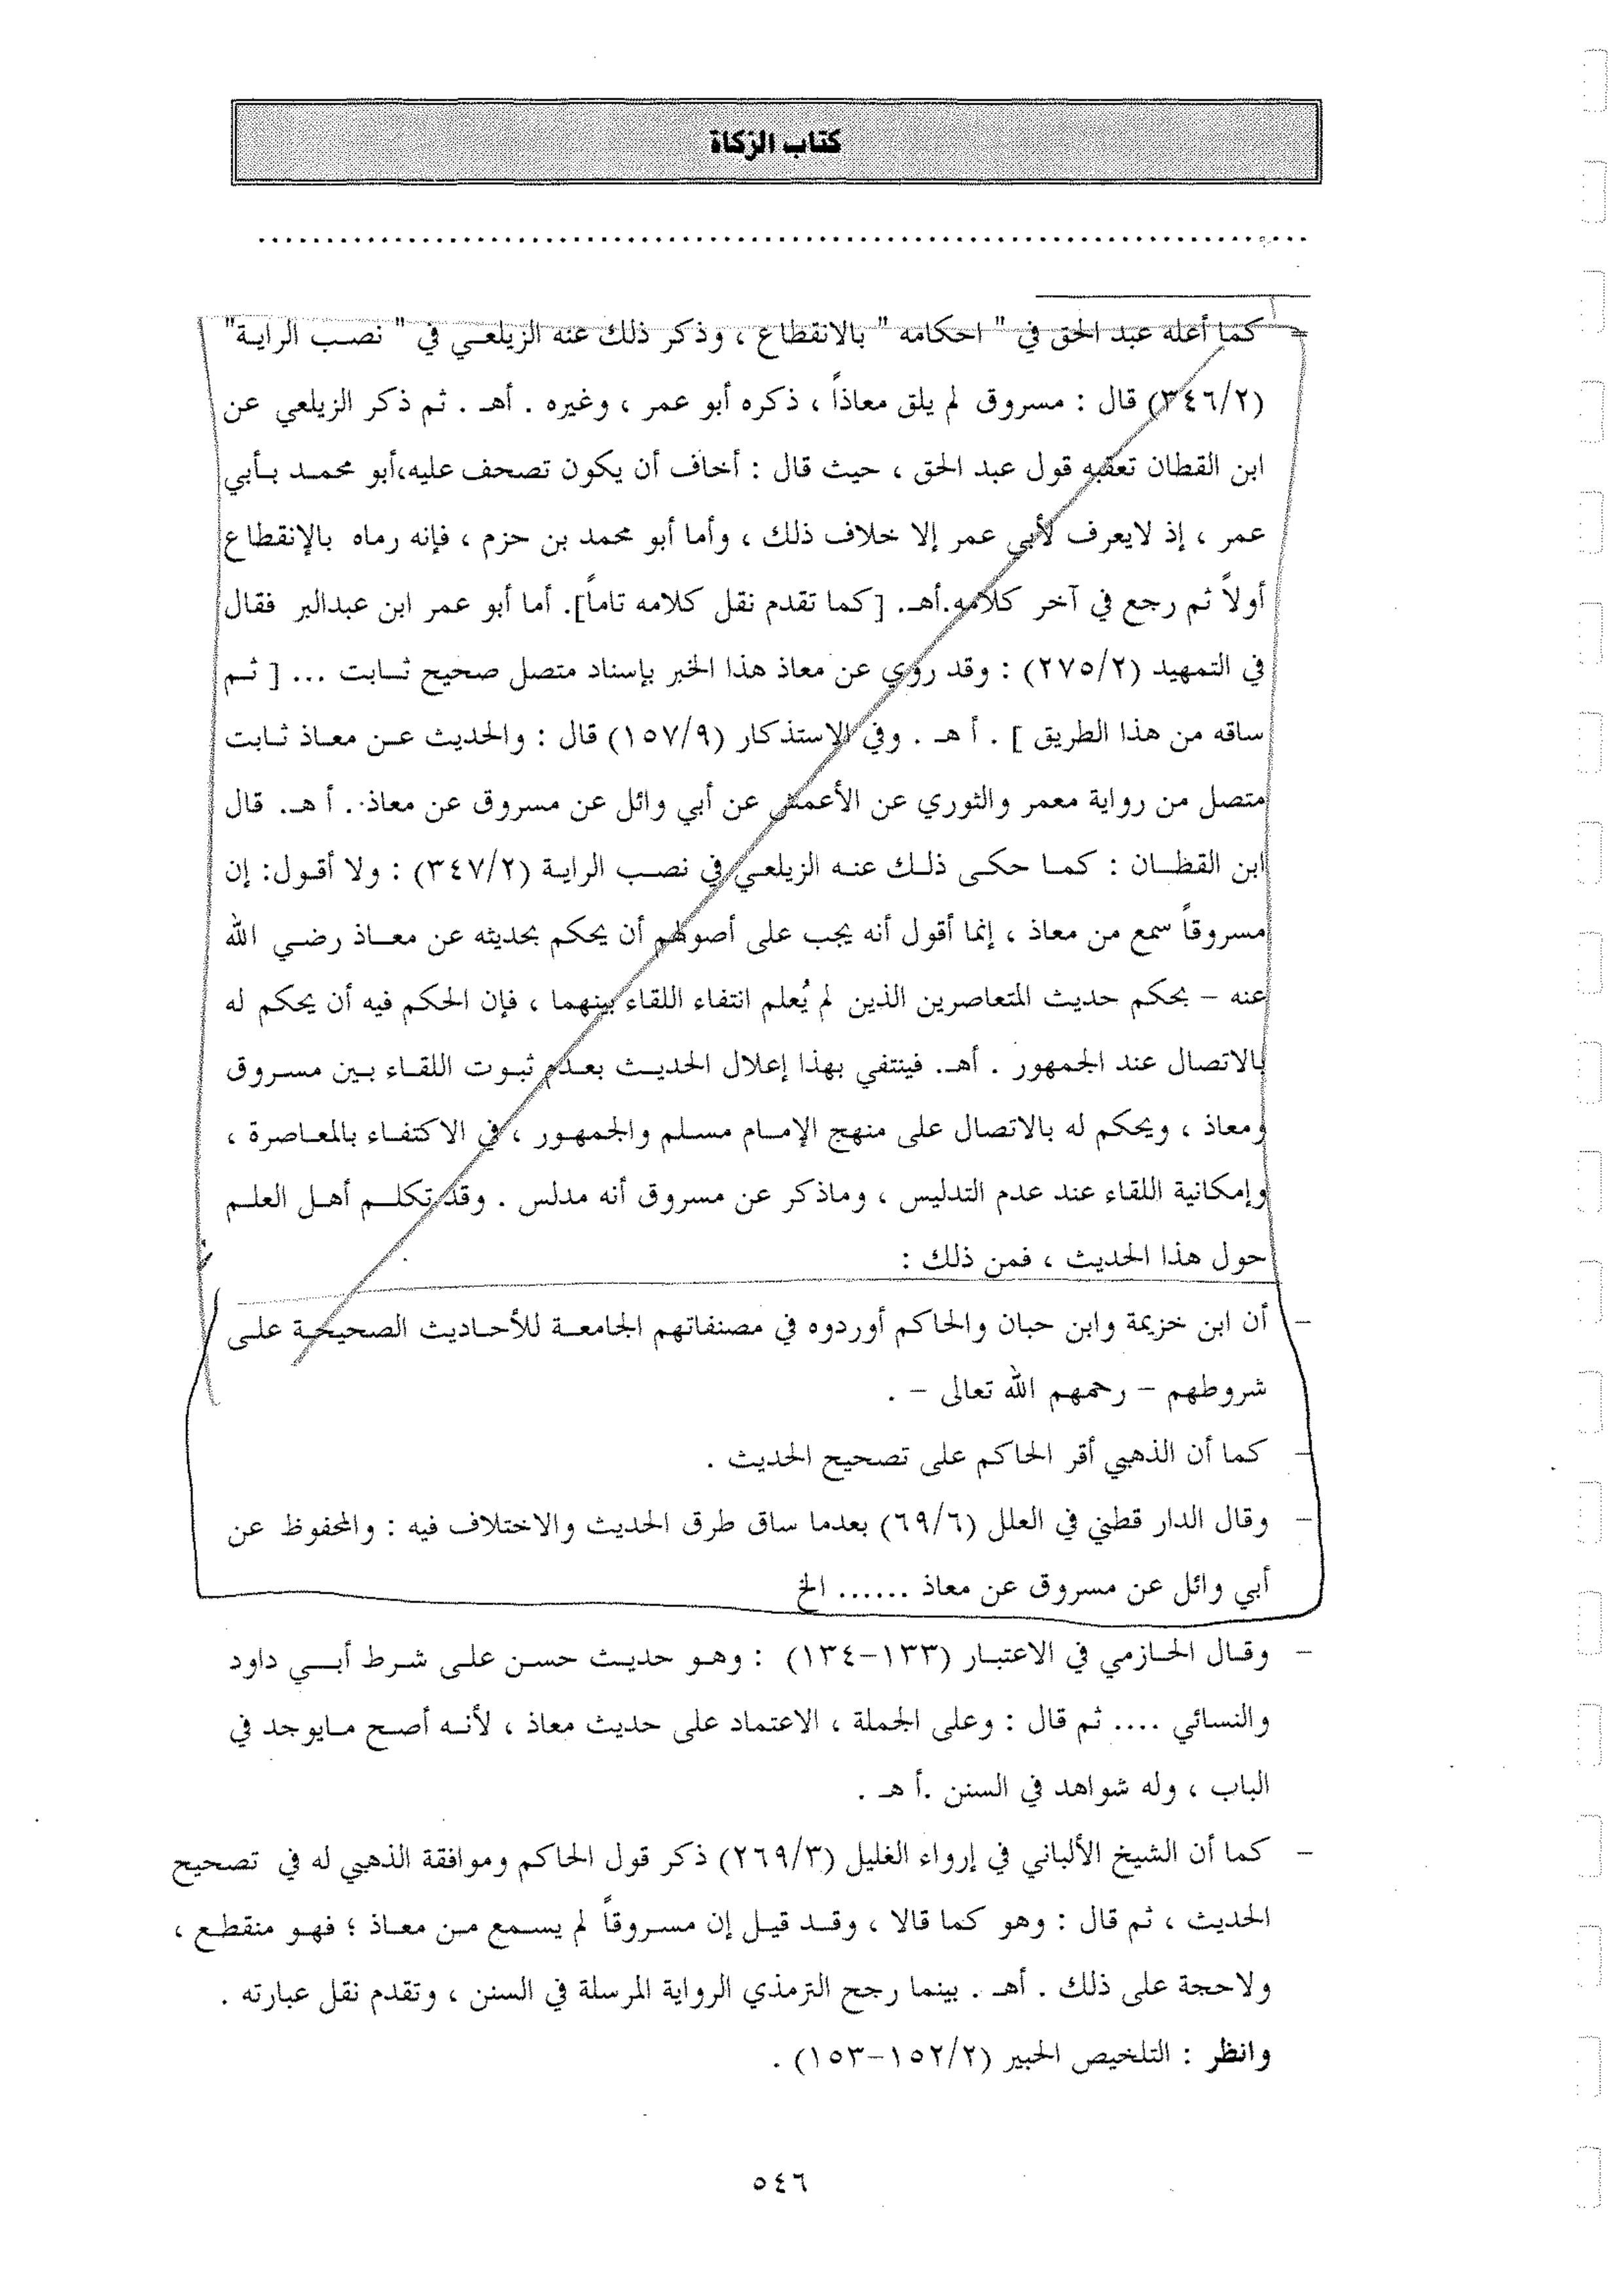 كتاب الزكاة
................................................................................
= كما أعله عبد الحق في " احكامه " بالانقطاع ، وذكر ذلك عنه الزيلعي في " نصب الراية"
(٣٤٦/٢) قال : مسروق لم يلق معاذاً ، ذكره أبو عمر ، وغيره . أهـ . ثم ذكر الزيلعي عن
ابن القطان تعقبه قول عبد الحق ، حيث قال : أخاف أن يكون تصحف عليه،أبو محمد بأبي
عمر ، إذ لايعرف لأبي عمر إلا خلاف ذلك ، وأما أبو محمد بن حزم ، فإنه رماه بالإنقطاع
أولاً ثم رجع في آخر كلامه.أهـ. [كما تقدم نقل كلامه تاماً]. أما أبو عمر ابن عبدالبر فقال
في التمهيد (٢٧٥/٢) : وقد روي عن معاذ هذا الخبر بإسناد متصل صحيح ثابت ... [ ثم
ساقه من هذا الطريق ] . أ هـ . وفي الاستذكار (١٥٧/٩) قال : والحديث عن معاذ ثابت
متصل من رواية معمر والثوري عن الأعمش عن أبي وائل عن مسروق عن معاذ . أ هـ. قال
ابن القظان : كما حكى ذلك عنه الزيلعي في نصب الراية (٣٤٧/٢) : ولا أقول: إن
مسروقاً سمع من معاذ ، إنما أقول أنه يجب على أصولهم أن يحكم بحديثه عن معاذ رضي الله
عنه – بحكم حديث المتعاصرين الذين لم يُعلم انتفاء اللقاء بينهما ، فإن الحكم فيه أن يحكم له
بالاتصال عند الجمهور . أهـ. فينتفي بهذا إعلال الحديث بعدم ثبوت اللقاء بين مسروق
ومعاذ ، ويحكم له بالاتصال على منهج الإمام مسلم والجمهور ، في الاكتفاء بالمعاصرة ،
وإمكانية اللقاء عند عدم التدليس ، وماذكر عن مسروق أنه مدلس . وقد تكلم أهل العلم
حول هذا الحديث ، فمن ذلك :
– أن ابن خزيمة وابن حبان والحاكم أوردوه في مصنفاتهم الجامعة للأحاديث الصحيحة على
شروطهم – رحمهم الله تعالى – .
– كما أن الذهبي أقر الحاكم على تصحيح الحديث .
– وقال الدار قطني في العلل (٦٩/٦) بعدما ساق طرق الحديث والاختلاف فيه : والمحفوظ عن
أبي وائل عن مسروق عن معاذ ...... الخ
– وقال الحازمي في الاعتبار (١٣٣-١٣٤) : وهو حديث حسن على شرط أبي داود
والنسائي .... ثم قال : وعلى الجملة ، الاعتماد على حديث معاذ ، لأنه أصح مايوجد في
الباب ، وله شواهد في السنن .أ هـ .
– كما أن الشيخ الألباني في إرواء الغليل (٢٦٩/٣) ذكر قول الحاكم وموافقة الذهبي له في تصحيح
الحديث ، ثم قال : وهو كما قالا ، وقد قيل إن مسروقاً لم يسمع من معاذ ؛ فهو منقطع ،
ولاحجة على ذلك . أهـ . بينما رجح الترمذي الرواية المرسلة في السنن ، وتقدم نقل عبارته .
وانظر : التلخيص الحبير (١٥٢/٢-١٥٣) .
٥٤٦